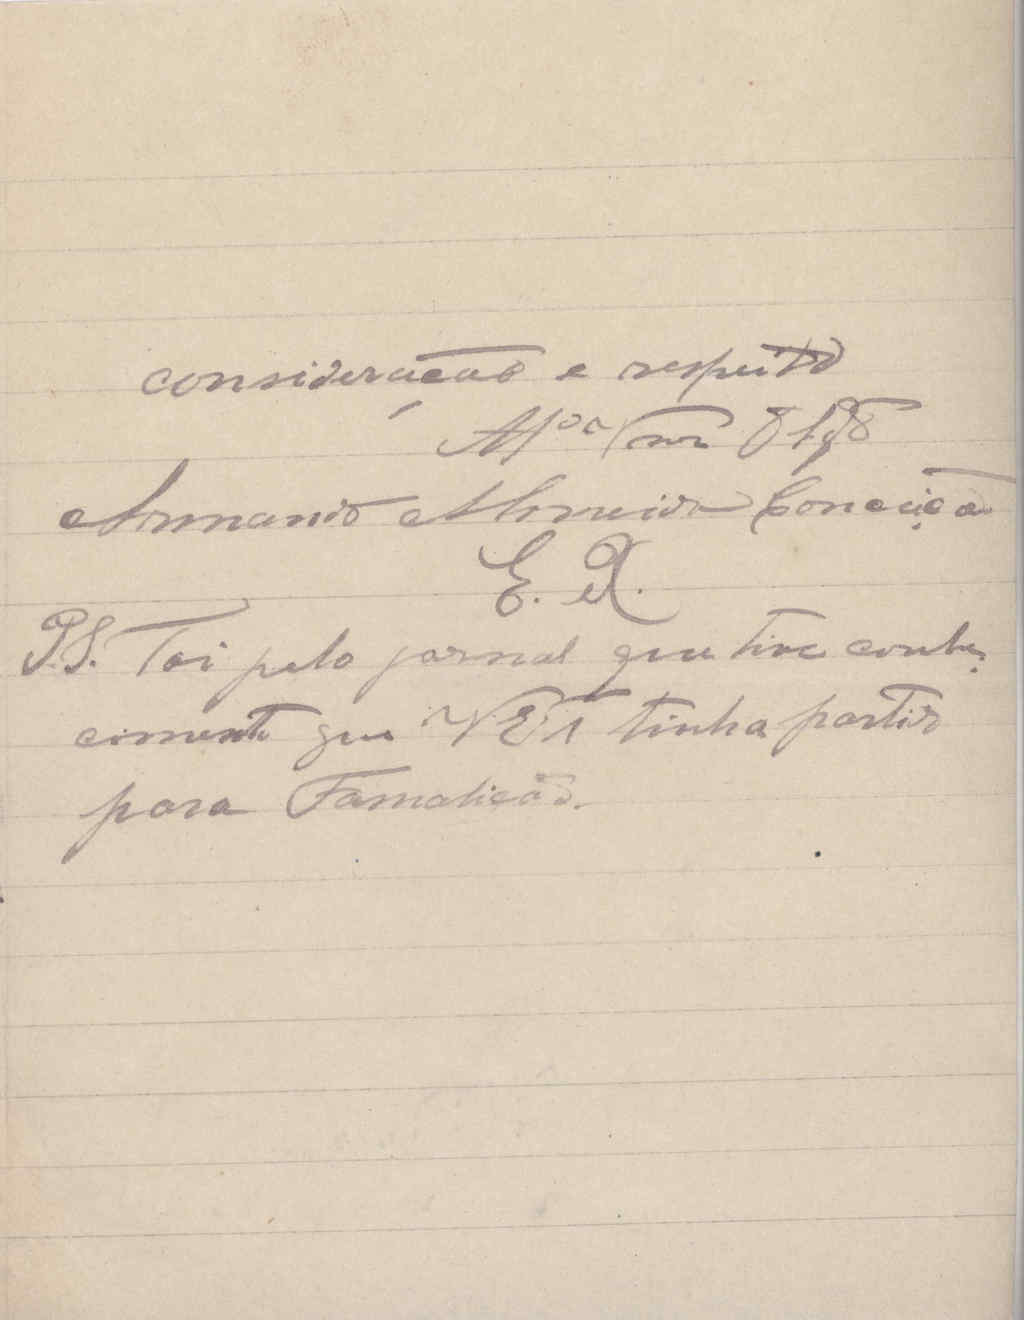 consideração e respeito
Armando Almeida Conceição
E. R.
P.S. Foi pelo jornal que tive conhe-
cimento que V Exª tinha partido
para Famalicão.